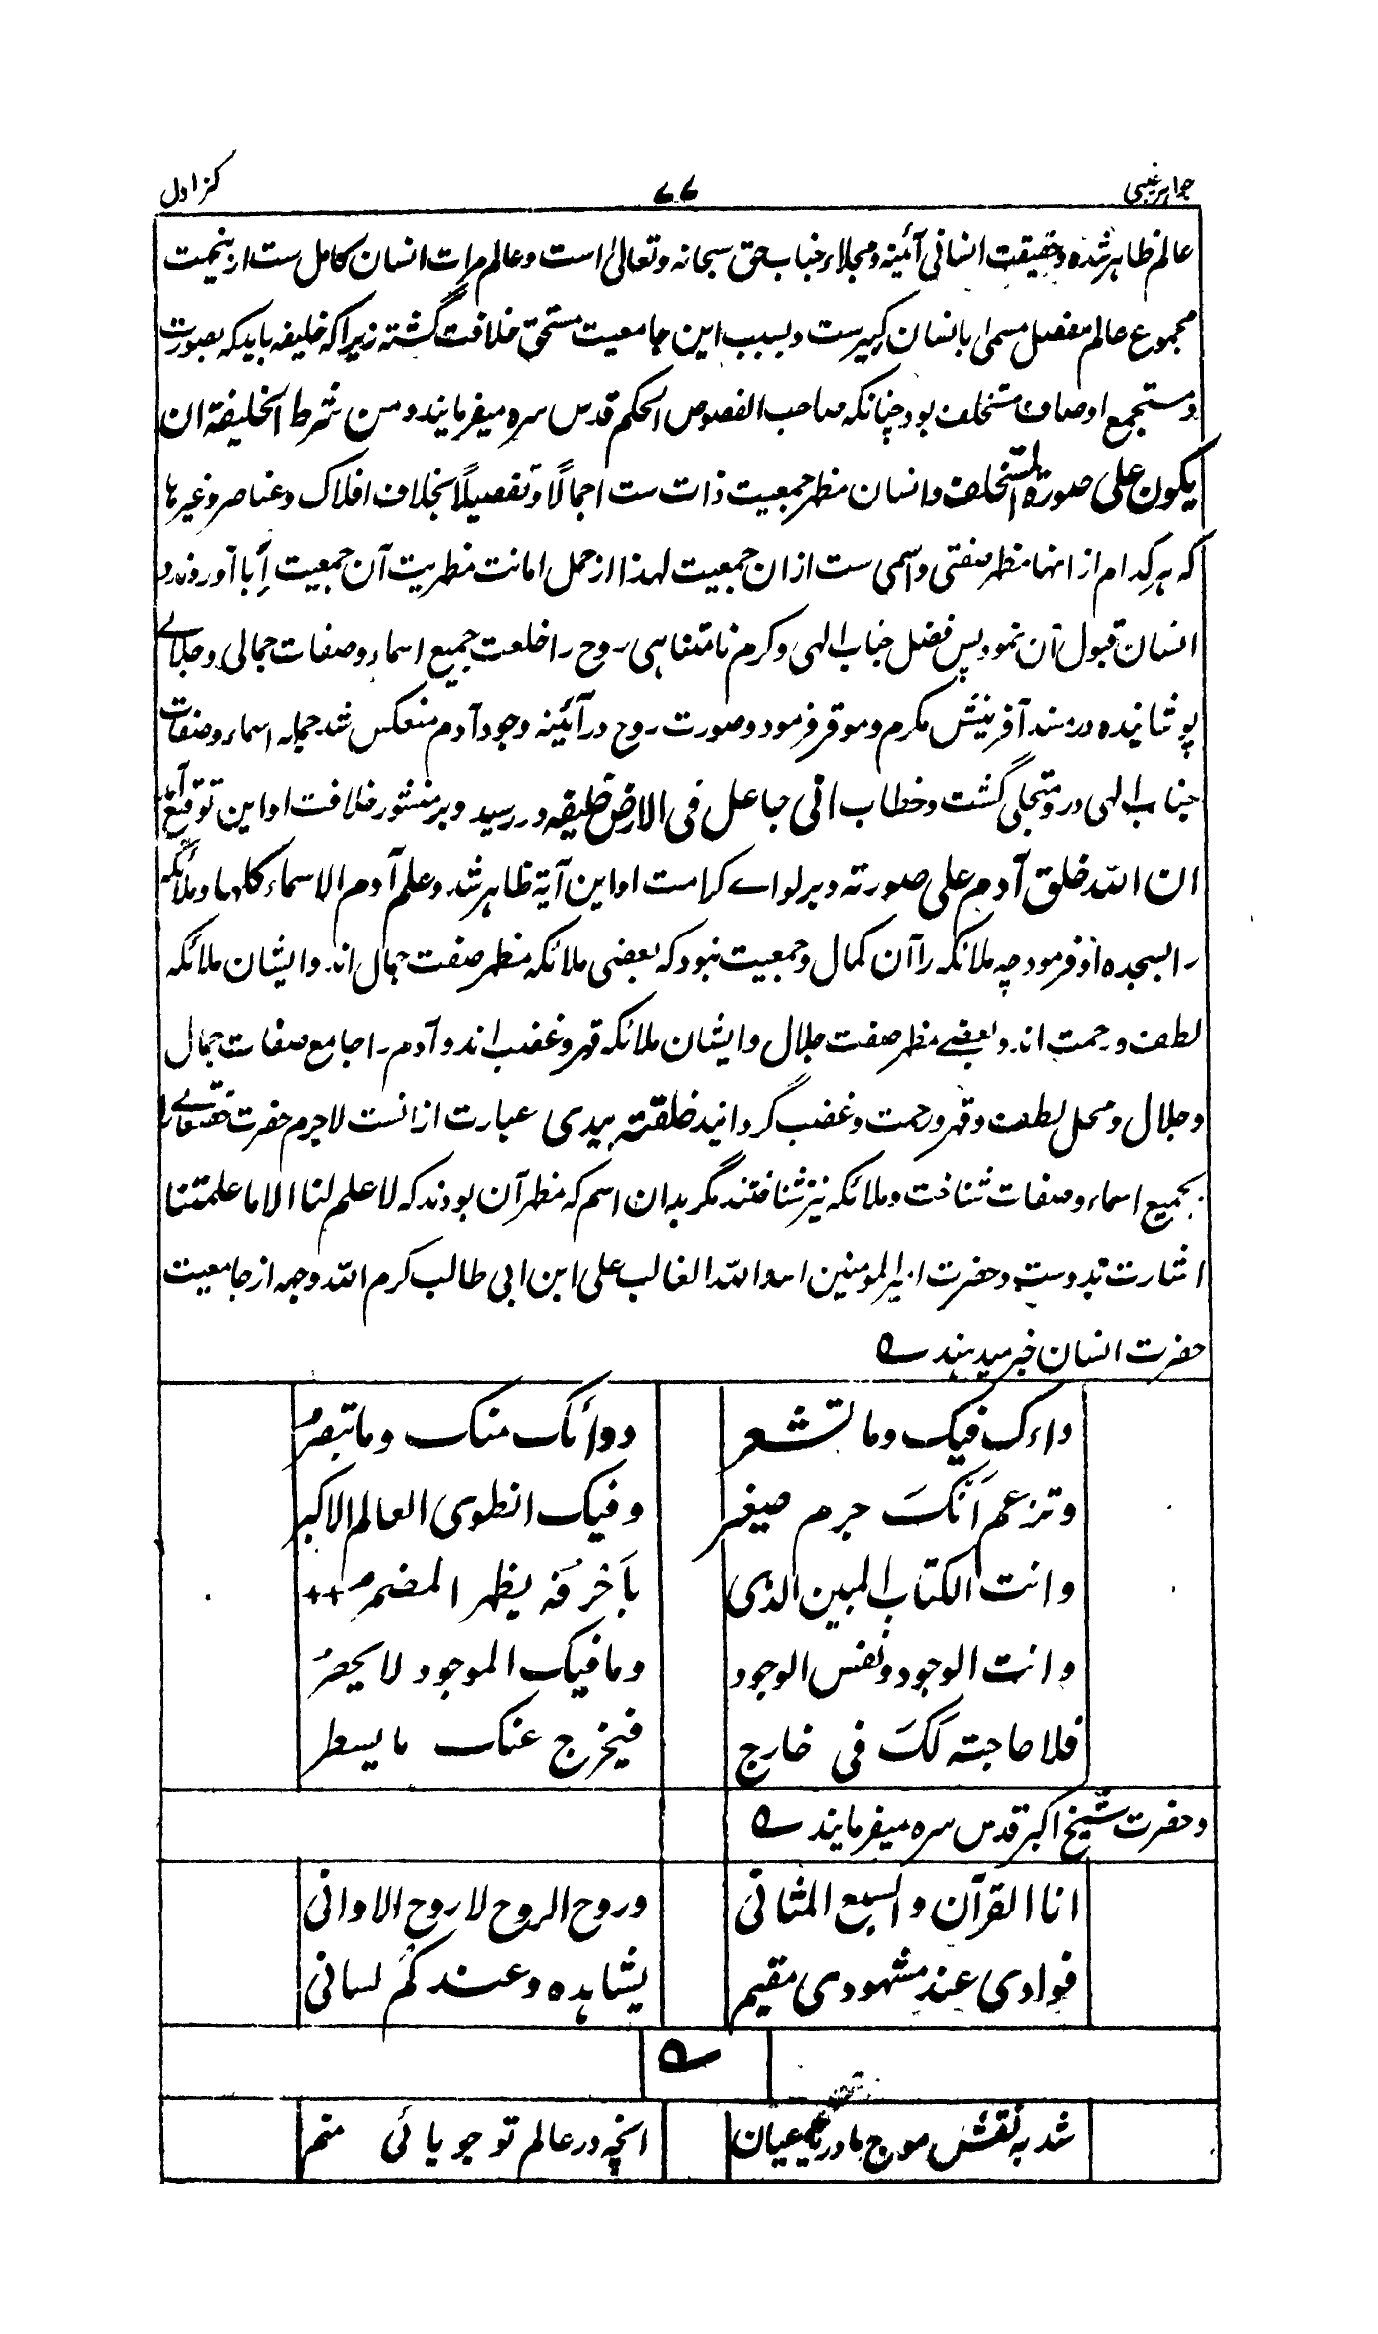 جواهر غیبی ۷۷ کنز اول
عالم ظاهر شده و حقیقت انسانی آئینه و مجلاء جناب حق سبحانه و تعالیٰ است و عالم مرات انسان کامل ست ازینجهت
مجموع عالم مفصل مسمی بانسان کبیرست و بسبب این جامعیت مستحق خلافت گشته زیرا که خلیفه باید که بصورت
و مستجمع اوصاف مستخلف بود چنانکه صاحب الفصوص الحکم قدس سره میفرمایند و من شرط الخلیفة ان
یکون علی صورة المستخلف و انسان مظهر جمعیت ذات ست اجمالًا و تفصیلًا بخلاف افلاک و عناصر و غیرها
که هر کدام از انها مظهر صفتی و اسمی ست ازان جمعیت لهذا از حمل امانت مظهریت آن جمعیت اِبا آوردند و
انسان قبول آن نمود پس فضل جناب الهی و کرم نامتناهی روح را خلعت جمیع اسماء و صفات جمالی و جلالے
پوشانیده در مسند آفرینش مکرم و موقر فرمود و صورت روح در آئینه وجود آدم منعکس شد جمله اسماء و صفات
جناب الهی درو متجلی گشت و خطاب انی جاعل فی الارض خلیفه در رسید و بر منشور خلافت او این توقیع آمد
ان الله خلق آدم علی صورته و بر لواے کرامت او این آیة ظاهر شد و علم آدم الاسماء کلها و ملائکه
را بسجده او فرمود چه ملائکه را آن کمال و جمعیت نبود که بعضی ملائکه مظهر صفت جمال اند و ایشان ملائکه
لطف و رحمت اند و بعضے مظهر صفت جلال و ایشان ملائکه قهر و غضب اند و آدم را جامع صفات جمال
و جلال و محل لطف و قهر و رحمت و غضب گردانید خلقته بیدی عبارت ازانست لاجرم حضرت حقتعالے را
بجمیع اسماء و صفات شناخت و ملائکه نیز شناختند مگر بدان اسم که مظهر آن بودند که لا علم لنا الا ما علمتنا
اشارت بدوست و حضرت امیر المومنین اسد الله الغالب علی ابن ابی طالب کرم الله وجهه از جامعیت
حضرت انسان خبر میدهند ے
داءک فیک وما تشعر دوائک منک وما تبصر
وتزعم اَنَّکَ جرم صغیر وفیک انطوی العالم الاکبر
وانت الکتاب المبین الذی بِاَحْرُفه یظهر المضمر ++
وانت الوجود ونفس الوجود وما فیک الموجود لا یحصر
فلا حاجته لَکَ فی خارج فیخرج عنک ما یسطر
و حضرت شیخ اکبر قدس سره میفرمایند ے
انا القرآن والسبع المثانی وروح الروح لا روح الاوانی
فوادی عند مشهودی مقیم یشاهده وعندکم لسانی
ے
شد به نقش موج ما دریا عیان انچه در عالم تو جویائی منم